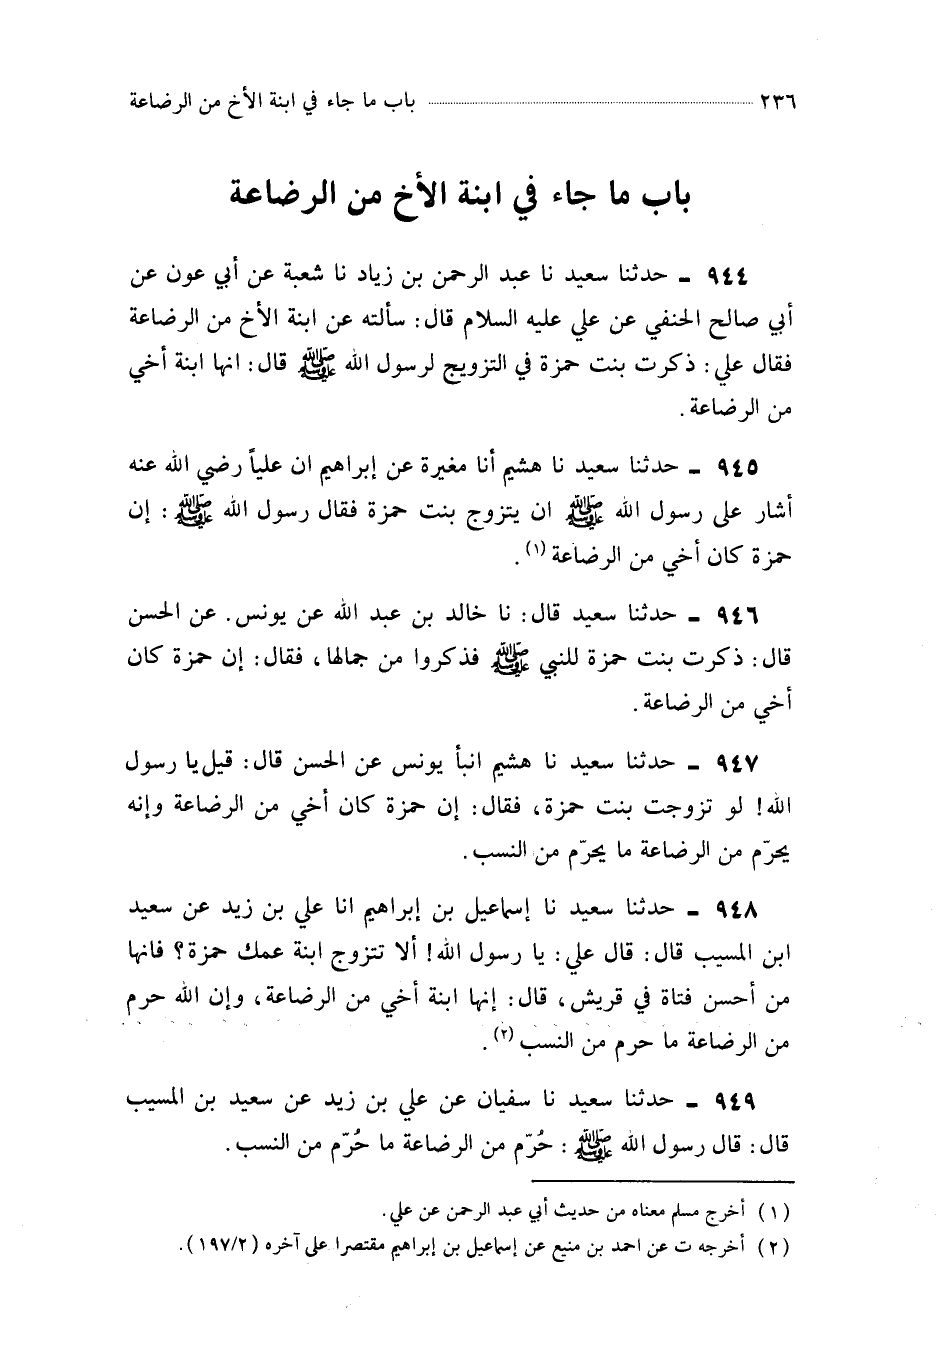 ٢٣٦ باب ما جاء في ابنة الأخ من الرضاعة
باب ما جاء في ابنة الأخ من الرضاعة
٩٤٤ - حدثنا سعيد نا عبد الرحمن بن زياد نا شعبة عن أبي عون عن
أبي صالح الحنفي عن علي عليه السلام قال: سألته عن ابنة الأخ من الرضاعة
فقال علي: ذكرت بنت حمزة في التزويج لرسول الله ﷺ قال: انها ابنة أخي
من الرضاعة.
٩٤٥ - حدثنا سعيد نا هشيم أنا مغيرة عن إبراهيم ان علياً رضي الله عنه
أشار على رسول الله ﷺ ان يتزوج بنت حمزة فقال رسول الله ﷺ: إن
حمزة كان أخي من الرضاعة (١).
٩٤٦ - حدثنا سعيد قال: نا خالد بن عبد الله عن يونس. عن الحسن
قال: ذكرت بنت حمزة للنبي ﷺ فذكروا من جمالها، فقال: إن حمزة كان
أخي من الرضاعة.
٩٤٧ - حدثنا سعيد نا هشيم انبأ يونس عن الحسن قال: قيل يا رسول
الله! لو تزوجت بنت حمزة، فقال: إن حمزة كان أخي من الرضاعة وإنه
يحرّم من الرضاعة ما يحرّم من النسب.
٩٤٨ - حدثنا سعيد نا إسماعيل بن إبراهيم انا علي بن زيد عن سعيد
ابن المسيب قال: قال علي: يا رسول الله! ألا تتزوج ابنة عمك حمزة؟ فانها
من أحسن فتاة في قريش، قال: إنها ابنة أخي من الرضاعة، وإن الله حرم
من الرضاعة ما حرم من النسب (٢).
٩٤٩ - حدثنا سعيد نا سفيان عن علي بن زيد عن سعيد بن المسيب
قال: قال رسول الله ﷺ: حُرّم من الرضاعة ما حُرّم من النسب.
(١) أخرج مسلم معناه من حديث أبي عبد الرحمن عن علي.
(٢) أخرجه ت عن احمد بن منيع عن إسماعيل بن إبراهيم مقتصرا على آخره (١٩٧/٢).